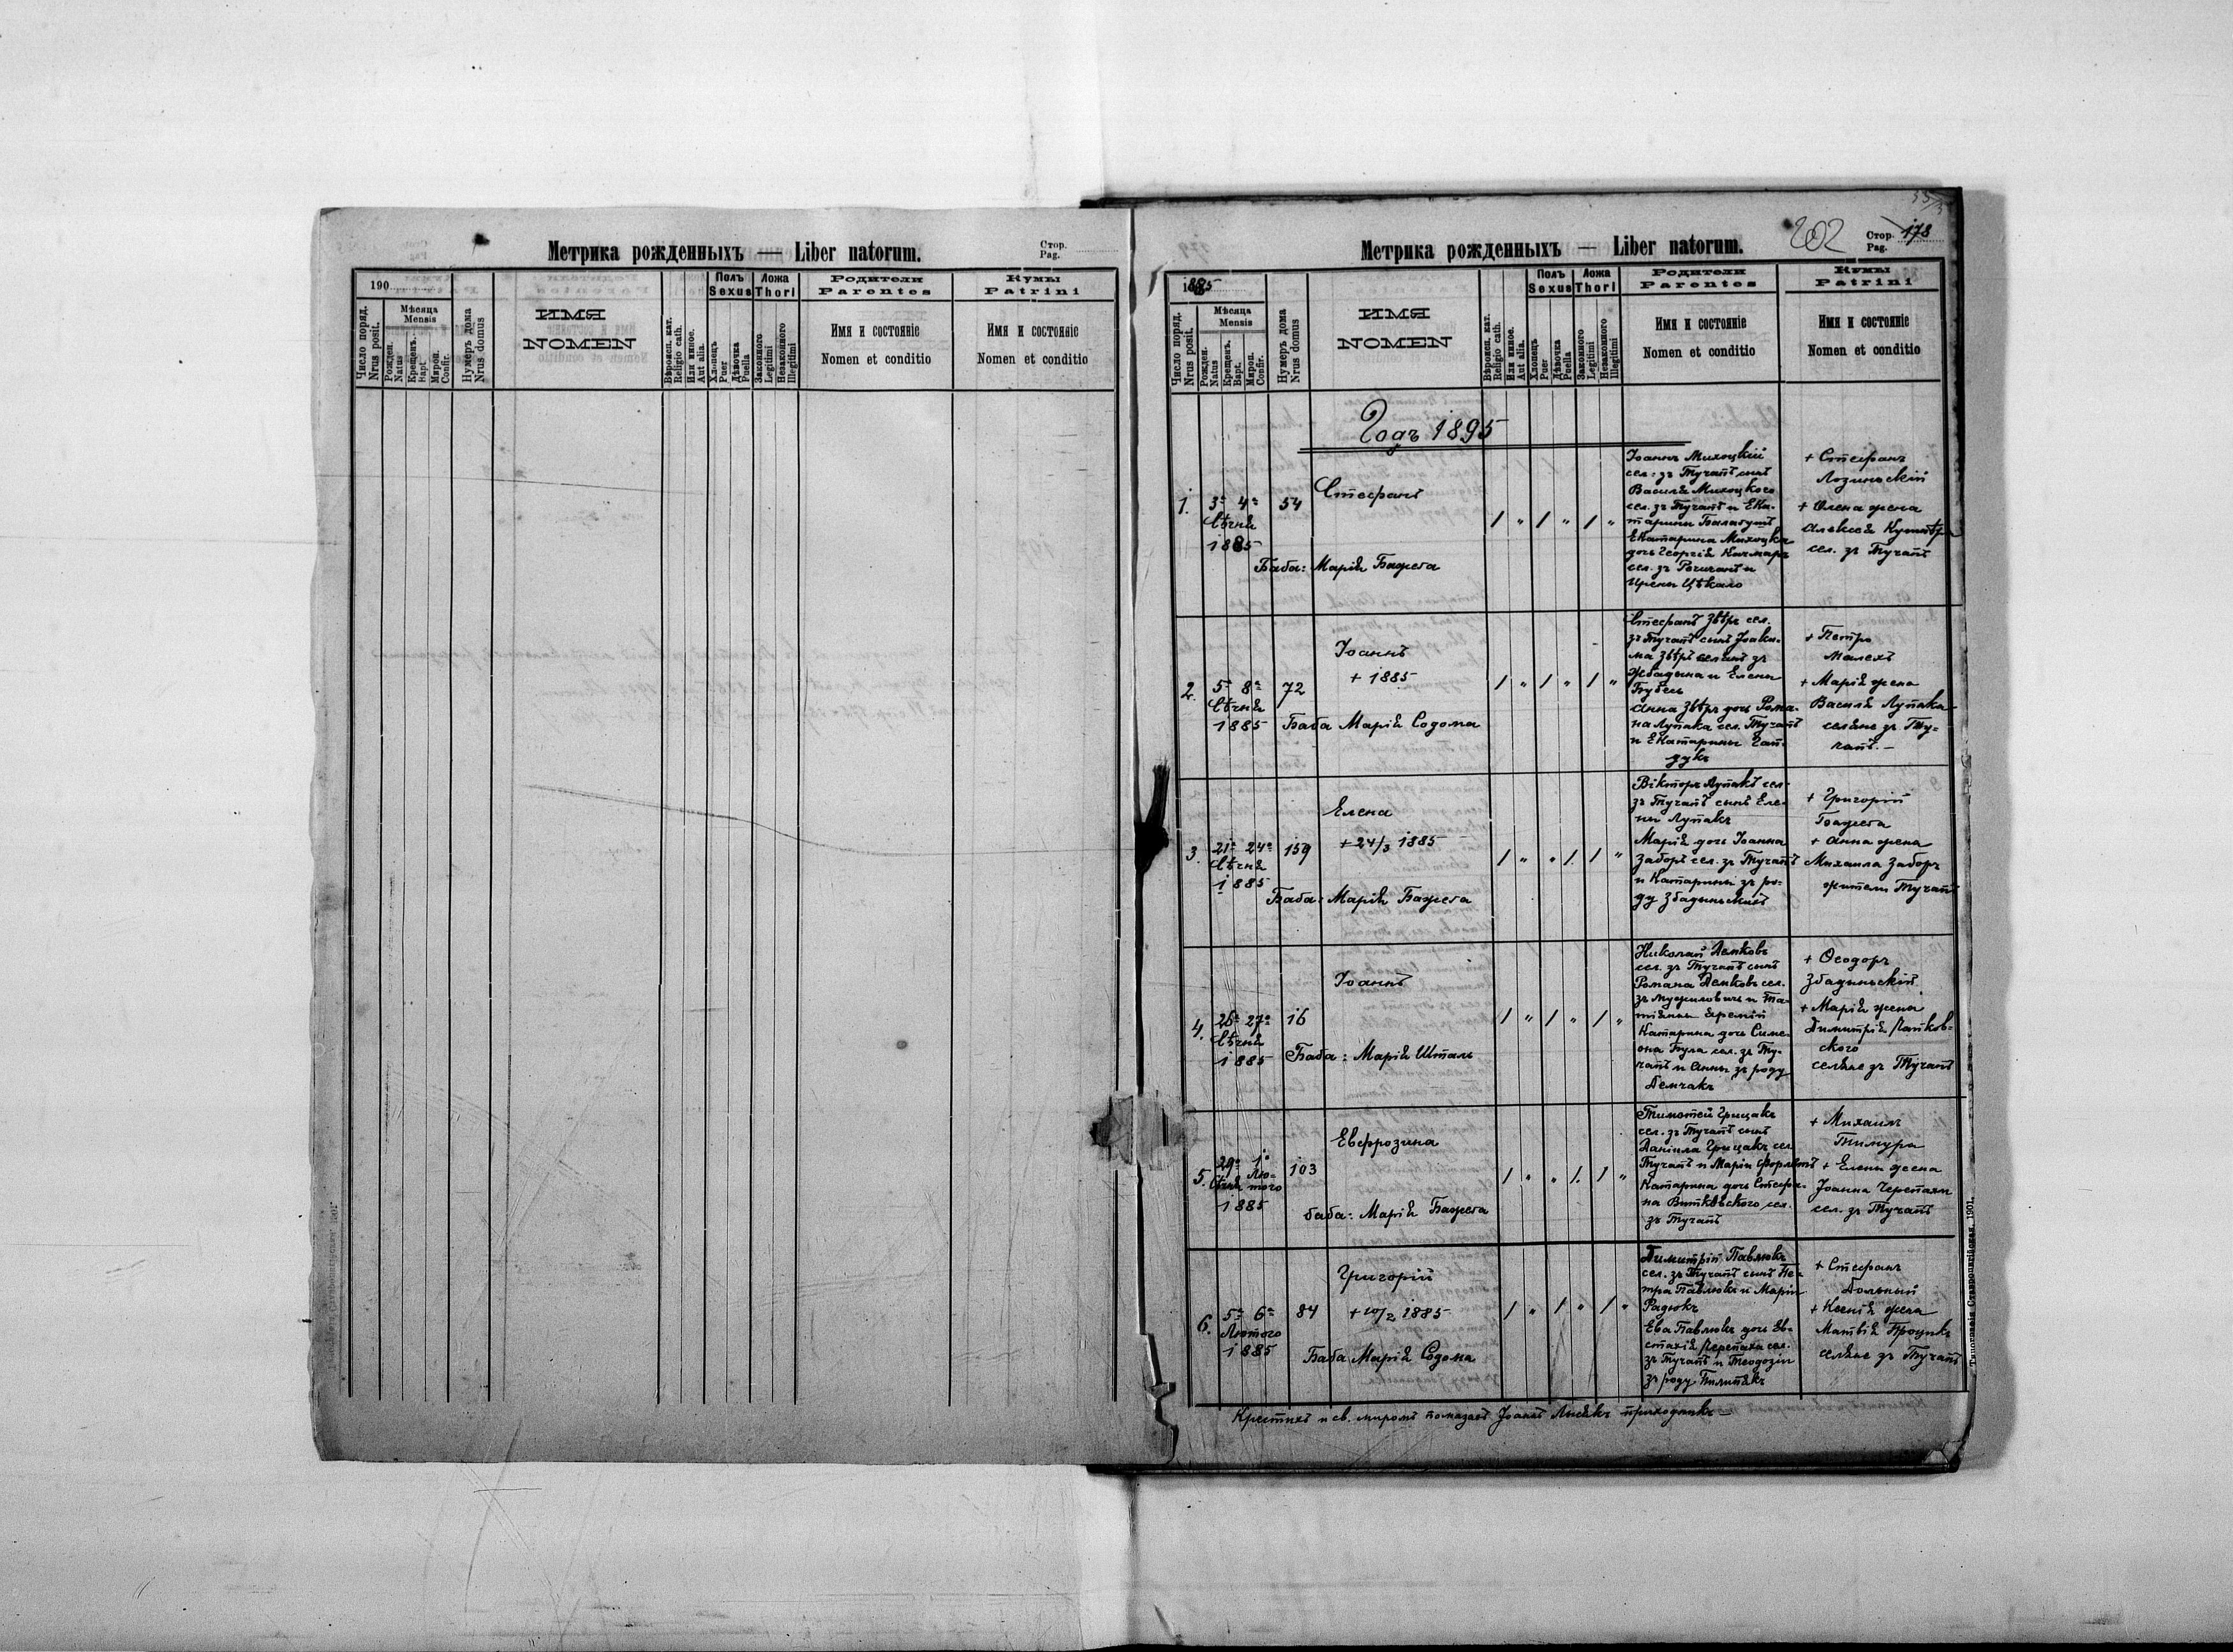 Метрика рожденныхъ — Liber natorum.
Стор.
Pag.
190
Число поряд.
Nrus posit.
Мѣсяца
Mensis
Рожден.
Natus
Крещенъ.
Bapt.
Мироп.
Confir.
Нумеръ дома
Nrus domus
ИМЯ
NOMEN
Вѣроисп. кат.
Religio cath.
Или иное.
Aut alia.
Полъ
Sexus
Хлопецъ
Puer
Дѣвочка
Puella
Ложа
Thori
Законного
Legitimi
Незаконного
Illegitimi
Родители
Parentes
Имя и состояніе
Nomen et conditio
Кумы
Patrini
Имя и состояніе
Nomen et conditio
Метрика рожденныхъ — Liber natorum.
202
Стор. 178
Pag.
1885
Число поряд.
Nrus posit.
Мѣсяца
Mensis
Рожден.
Natus
Крещенъ.
Bapt.
Мироп.
Confir.
Нумеръ дома
Nrus domus
ИМЯ
NOMEN
Вѣроисп. кат.
Religio cath.
Или иное.
Aut alia.
Полъ
Sexus
Хлопецъ
Puer
Дѣвочка
Puella
Ложа
Thori
Законного
Legitimi
Незаконного
Illegitimi
Родители
Parentes
Имя и состояніе
Nomen et conditio
Кумы
Patrini
Имя и состояніе
Nomen et conditio
Годъ 1895
1. 3 4 Сѣчня 1885
54
Стефанъ
Баба: Марія Бажега
Іоаннъ Михоцкій
сел. зъ Тучапъ сынъ
Василя Михоцкого
сел. зъ Тучапъ и Ека-
тарины
Екатарина Михоцка
дочь Георгія Качмаръ
сел. зъ и
Ирены Цѣкало
+ Стефанъ
Лозиньскій
+ Олена жена
Алексея
сел. зъ Тучапъ
2. 5 8 Сѣчня 1885
72
Іоаннъ
+ 1885
Баба Марія Содома
Стефанъ Звѣръ сел.
зъ Тучапъ сынъ Іоаки-
ма Звѣръ селянъ зъ
и Елены
Анна Звѣръ дочь Рома-
на Лупака сел. Тучапъ
и Екатарины Гай-
дукъ
+ Петро
Малехъ
+ Марія жена
Василя Лупака
селяне зъ Ту-
чапъ. —
3. 21 24 Сѣчня 1885
159
Елена
+ 24/3 1885
Баба: Марія Бажега
Вікторъ Лупакъ сел.
зъ Тучапъ сынъ Еле-
ны Лупакъ
Марія дочь Іоанна
Заборъ сел. зъ Тучапъ
и Катарины зъ ро-
ду Збадыньскихъ
+ Григорій
Бажега
+ Анна жена
Михаила Заборъ
жители Тучапъ
4. 26 27 Сѣчня 1885
16
Іоаннъ
Баба: Марія Шталь
Николай Демковъ
сел. зъ Тучапъ сынъ
Романа Демковъ сел.
зъ Мужиловичъ и Та-
тіанны Еремій
Катарина дочь Симе-
она сел. зъ Ту-
чапъ и Анны зъ роду
Демчакъ
+ Ѳеодоръ
Збадыньскій
+ Марія жена
Димитрія
ского
селяне зъ Тучапъ
5. 29 Сѣчня 1 Лютого 1885
103
Евфрозина
баба: Марія Бажега
Тимотей Грицакъ
сел. зъ Тучапъ сынъ
Даніила Грицакъ сел.
Тучапъ и Маріи
Катарина дочь Стефа-
на Витковского сел.
зъ Тучапъ
+ Михаилъ
Тимура
+ Елены жена
Іоанна Черепахи
сел. зъ Тучапъ
6. 5 6 Лютого 1885
84
Григорій
+ 10/2 1885
Баба Марія Содома
Димитрій Павлюкъ
сел. зъ Тучапъ сынъ Пе-
тра Павлюкъ и Маріи
Радюкъ
Ева Павлюкъ дочь Ев-
стахія Черепаха сел.
зъ Тучапъ и Теодозіи
зъ роду Пилипякъ
+ Стефанъ
Дольный
+ Ксенія жена
Матвія Процикъ
селяне зъ Тучапъ
Крестилъ и св. миромъ помазалъ Іоаннъ Лысякъ приходникъ
Типографія Ставропигійская, 1901.